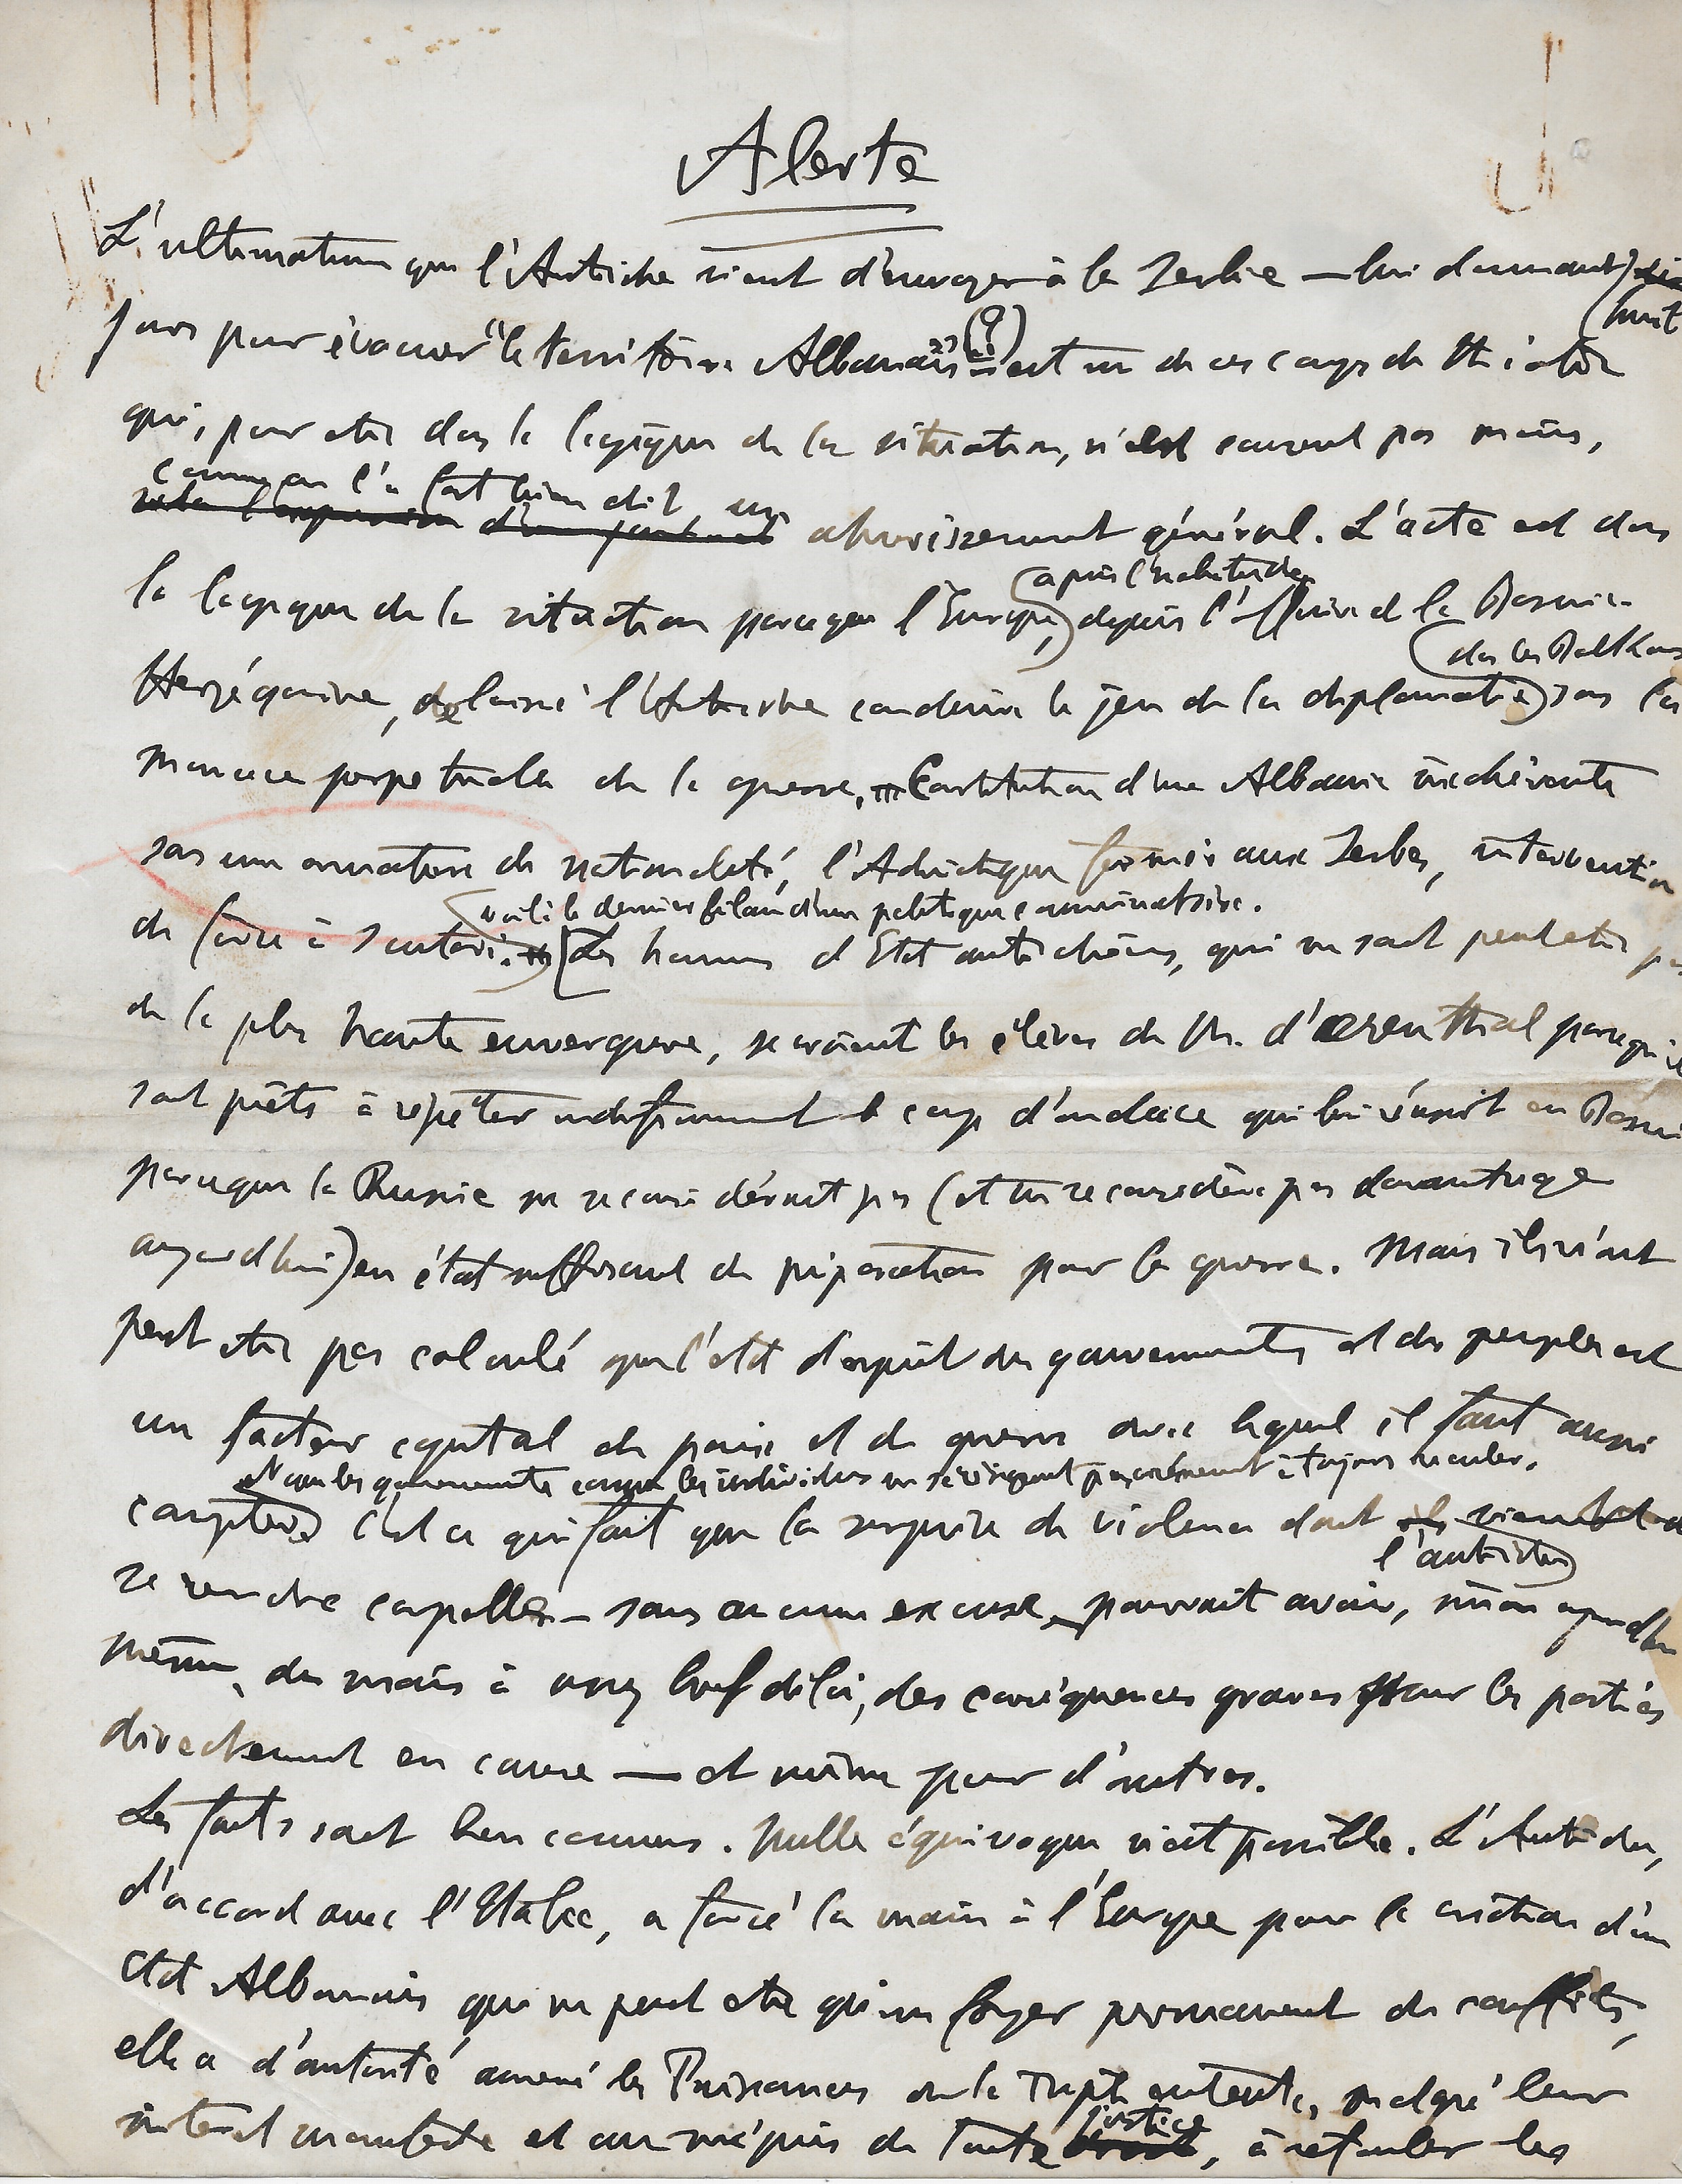 Alerte
L'ultimatum que l'Autriche vient d'envoyer à la Serbie — lui donnant
huit
jours pour évacuer "le territoire Albanais" (?) — est un de ces coups de théâtre
qui, pour être dans la logique de la situation, n'est souvent pas moins,
comme on l'a fort bien dit, un
ahurissement général. L'acte est dans
après l'habitude
la logique de la situation parce que l'Europe, depuis l'affaire de la Bosnie-
dans les Balkans
Herzégovine, laissé l'Autriche conduire le jeu de la diplomatie sous la
menace perpétuelle de la guerre. Constitution d'une Albanie inchérente
sans une armature de nationalité, l'Adriatique fermée aux Serbes, intervention
voilà le dernier bilan d'une politique comminatoire.
de force à Scutari. Les hommes d'Etat autrichiens, qui ne sont peut être pas
de la plus haute envergure, se croient les élèves de M. d'Ærenthal parce qu'ils
sont prêts à répéter indéfiniment le coup d'audace qui lui réussit en Bosnie
parce que la Russie ne se considérait pas (et ne se considère pas davantage
aujourd'hui) en état suffisant de préparation pour la guerre. Mais ils n'ont
peut être pas calculé que l'état d'esprit des gouvernements et des peuples est
un facteur capital de paix et de guerre avec lequel il faut aussi
compter. Nuls gouvernements comme les individus ne se résignent pas aisément à toujours reculer.
C'est ce qui fait que la surprise de violence dont vient de
l'Autriche
se rendre coupable — sans aucune excuse — pourrait avoir, sinon aujourd'hui
même, du moins à assez bref délai, des conséquences graves pour les parties
directement en cause — et même pour d'autres.
Les faits sont bien connus. Nulle équivoque n'est possible. L'Autriche,
d'accord avec l'Italie, a forcé la main à l'Europe pour la création d'un
état Albanais qui ne peut être qu'un foyer permanent de conflits,
elle a d'autorité amené les Puissances de la Triple entente, malgré leur
justice
intérêt manifeste et au mépris de toute, à refouler les